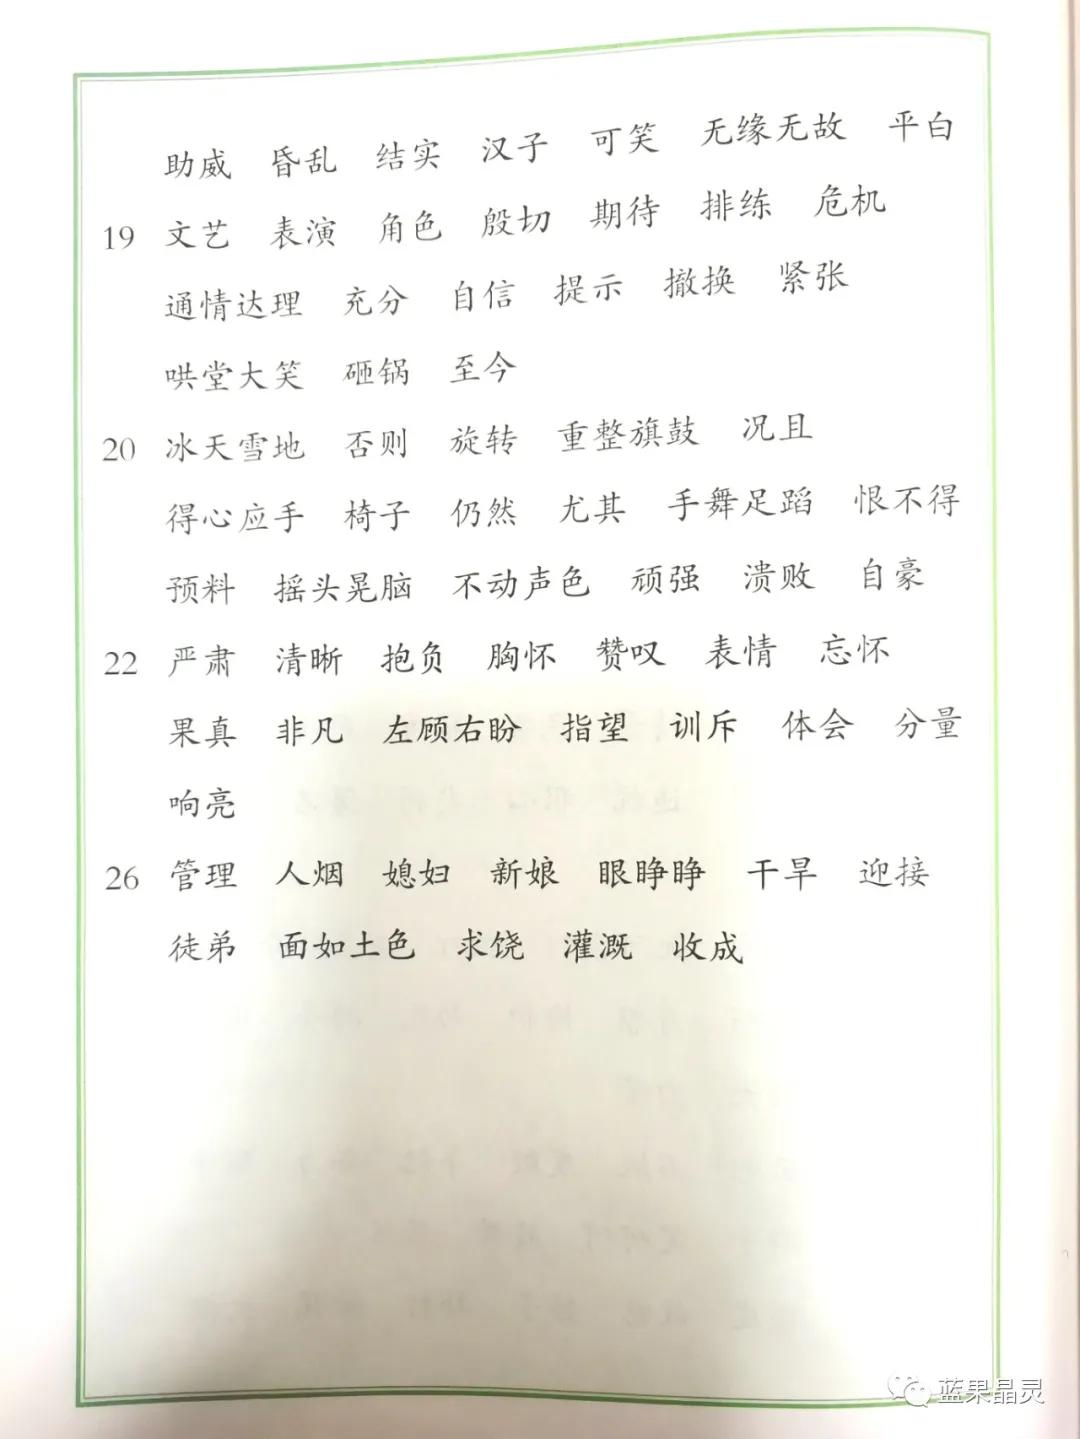 助威 昏乱 结实 汉子 可笑 无缘无故 平白
19 文艺 表演 角色 殷切 期待 排练 危机
通情达理 充分 自信 提示 撤换 紧张
哄堂大笑 砸锅 至今
20 冰天雪地 否则 旋转 重整旗鼓 况且
得心应手 椅子 仍然 尤其 手舞足蹈 恨不得
预料 摇头晃脑 不动声色 顽强 溃败 自豪
22 严肃 清晰 抱负 胸怀 赞叹 表情 忘怀
果真 非凡 左顾右盼 指望 训斥 体会 分量
响亮
26 管理 人烟 媳妇 新娘 眼睁睁 干旱 迎接
徒弟 面如土色 求饶 灌溉 收成
蓝果晶灵